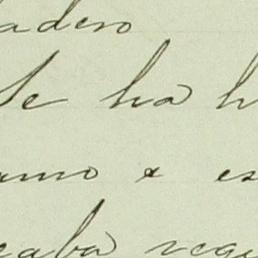 adero
Se ha h
amo e es
caba regu